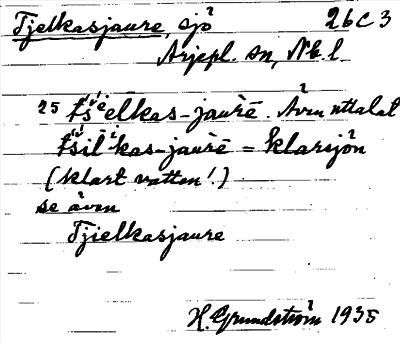 Tjelkasjaure, sjö 26C3
Arjepl. sn, Nb l.
25 tśi̯elkas-jaurē. Även uttalat
tśilˈkas-jaurē = klarsjön
(klart vatten!)
se även
Tjielkasjaure
H. Grundström 1935